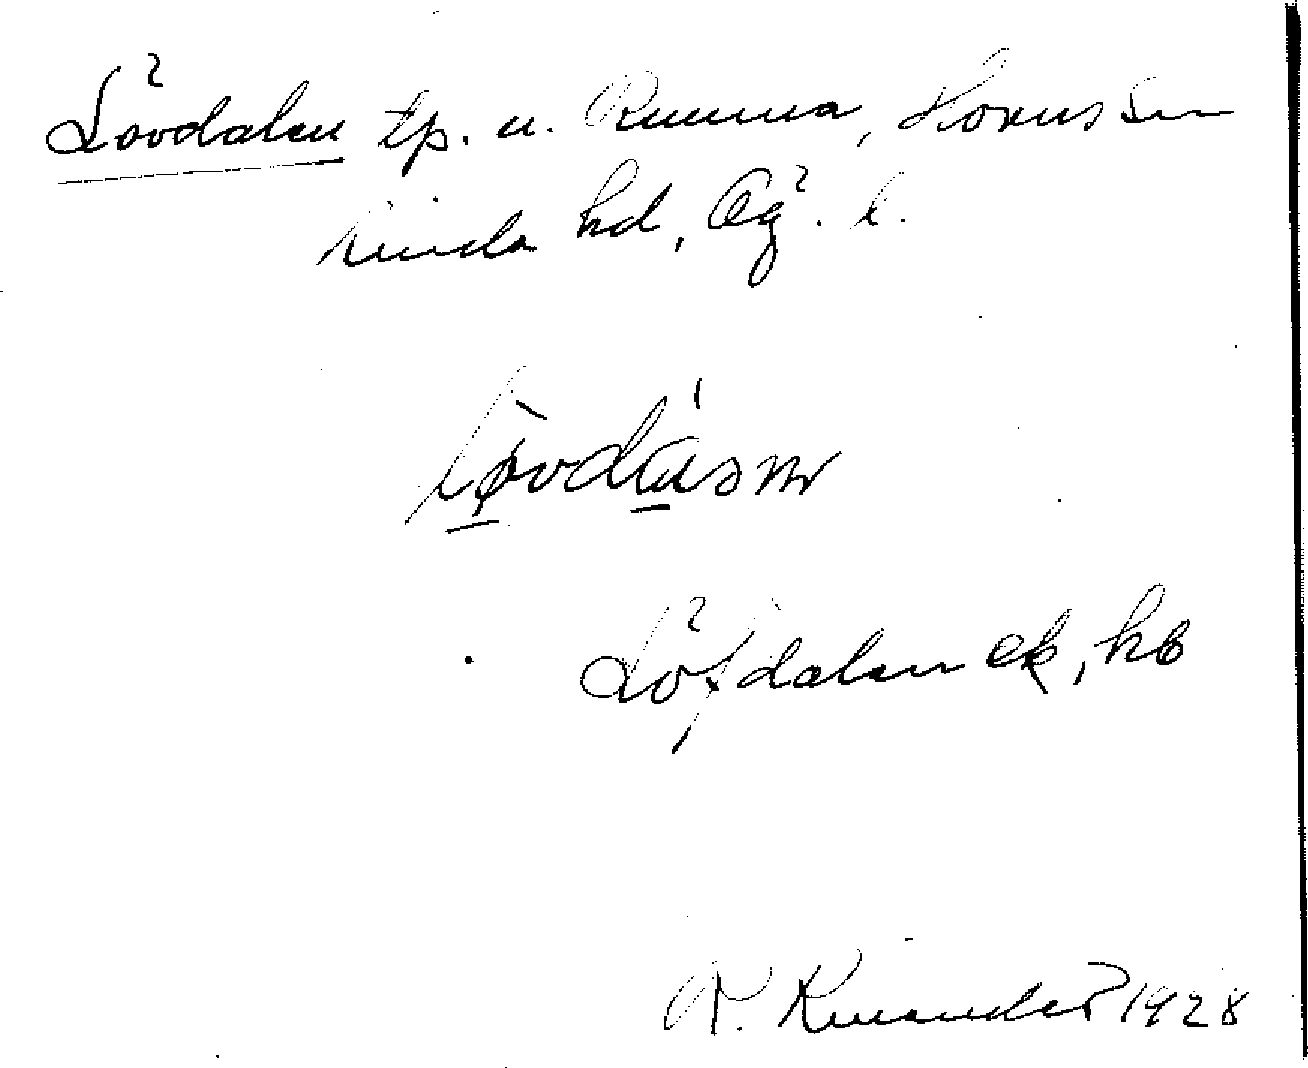 Lövdalen tp. u. Rumma, Horns sn
Kinda hd, Ög. l.
Löfdalen ek, kb
R. Kinander 1928